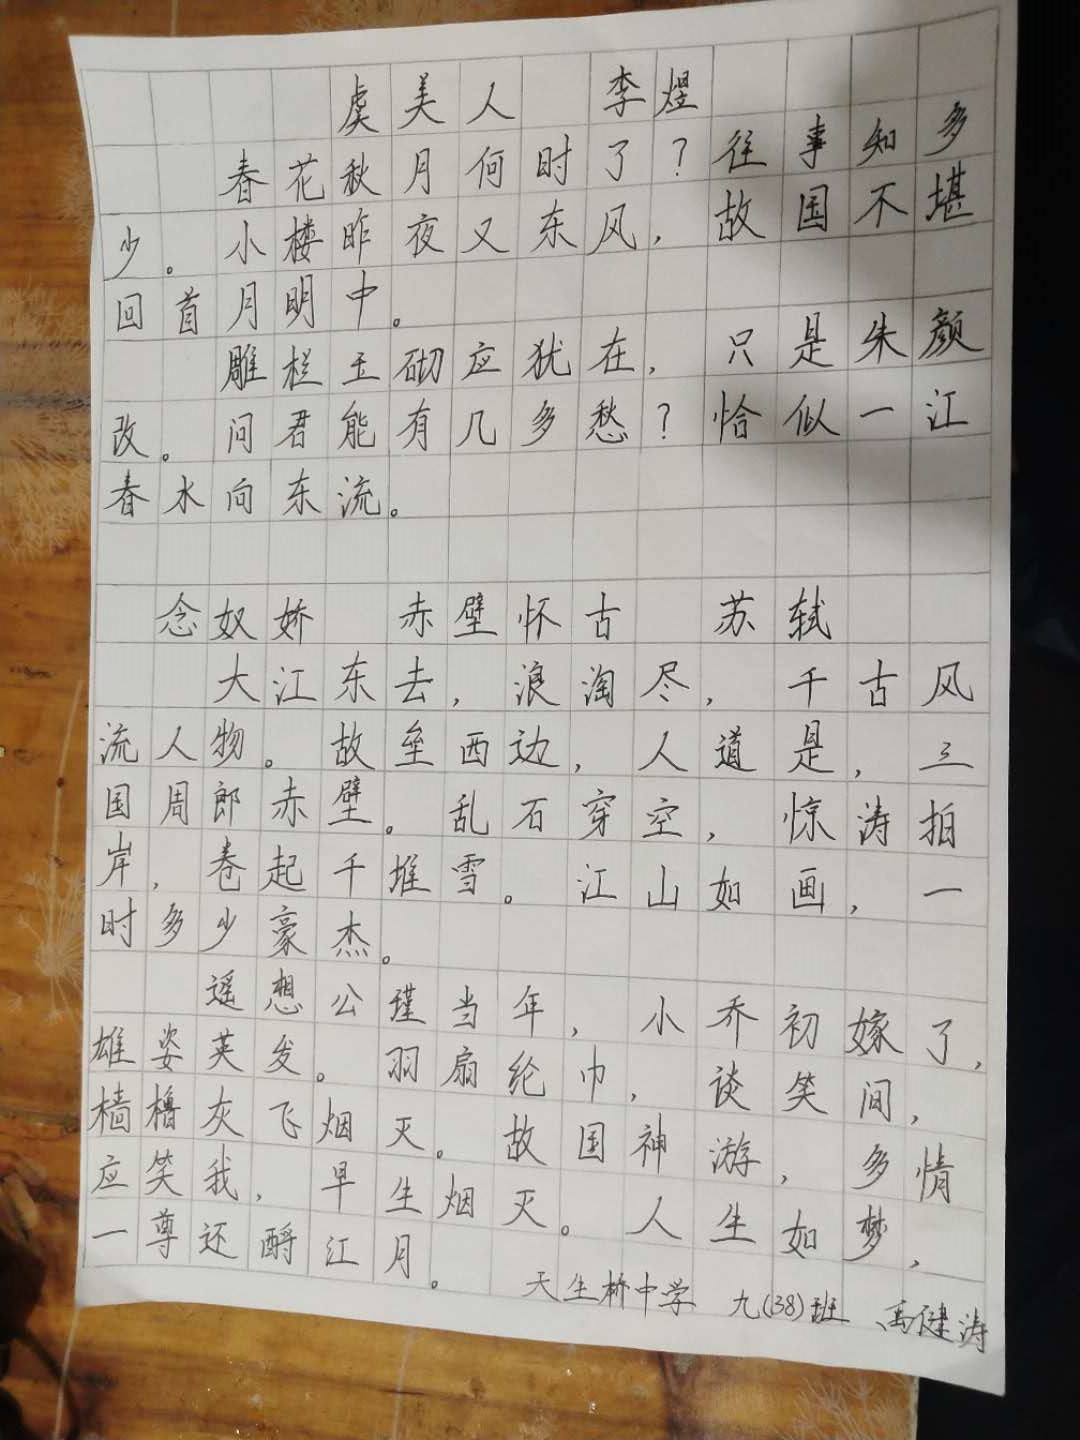 虞美人 李煜
春花秋月何时了？往事知多
少。小楼昨夜又东风，故国不堪
回首月明中。
雕栏玉砌应犹在，只是朱颜
改。问君能有几多愁？恰似一江
春水向东流。
念奴娇 赤壁怀古 苏轼
大江东去，浪淘尽，千古风
流人物。故垒西边，人道是，三
国周郎赤壁。乱石穿空，惊涛拍
岸，卷起千堆雪。江山如画，一
时多少豪杰。
遥想公瑾当年，小乔初嫁了，
雄姿英发。羽扇纶巾，谈笑间，
樯橹灰飞烟灭。故国神游，多情
应笑我，早生烟灭。人生如梦，
一尊还酹江月。
天生桥中学 九(38)班 高健涛